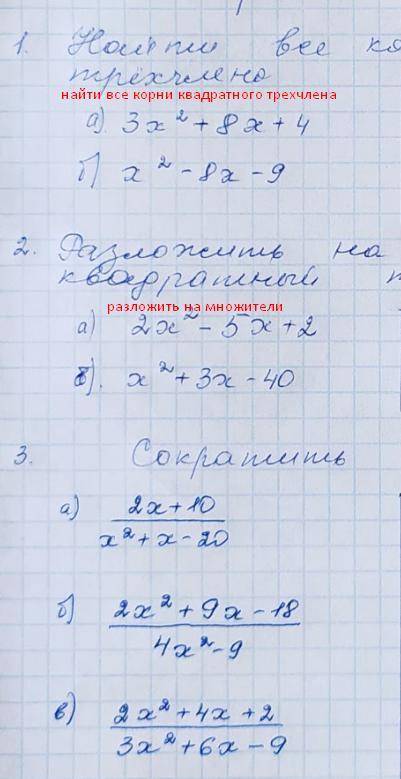 1. Найти все ко
трёхчлена
найти все корни квадратного трехчлена
а) 3x² + 8x + 4
б) x² - 8x - 9
2. Разложить на
квадратный т
разложить на множители
а) 2x² - 5x + 2
б). x² + 3x - 40
3. Сократить
а) (2x + 10)/(x² + x - 20)
б) (2x² + 9x - 18)/(4x² - 9)
в) (2x² + 4x + 2)/(3x² + 6x - 9)